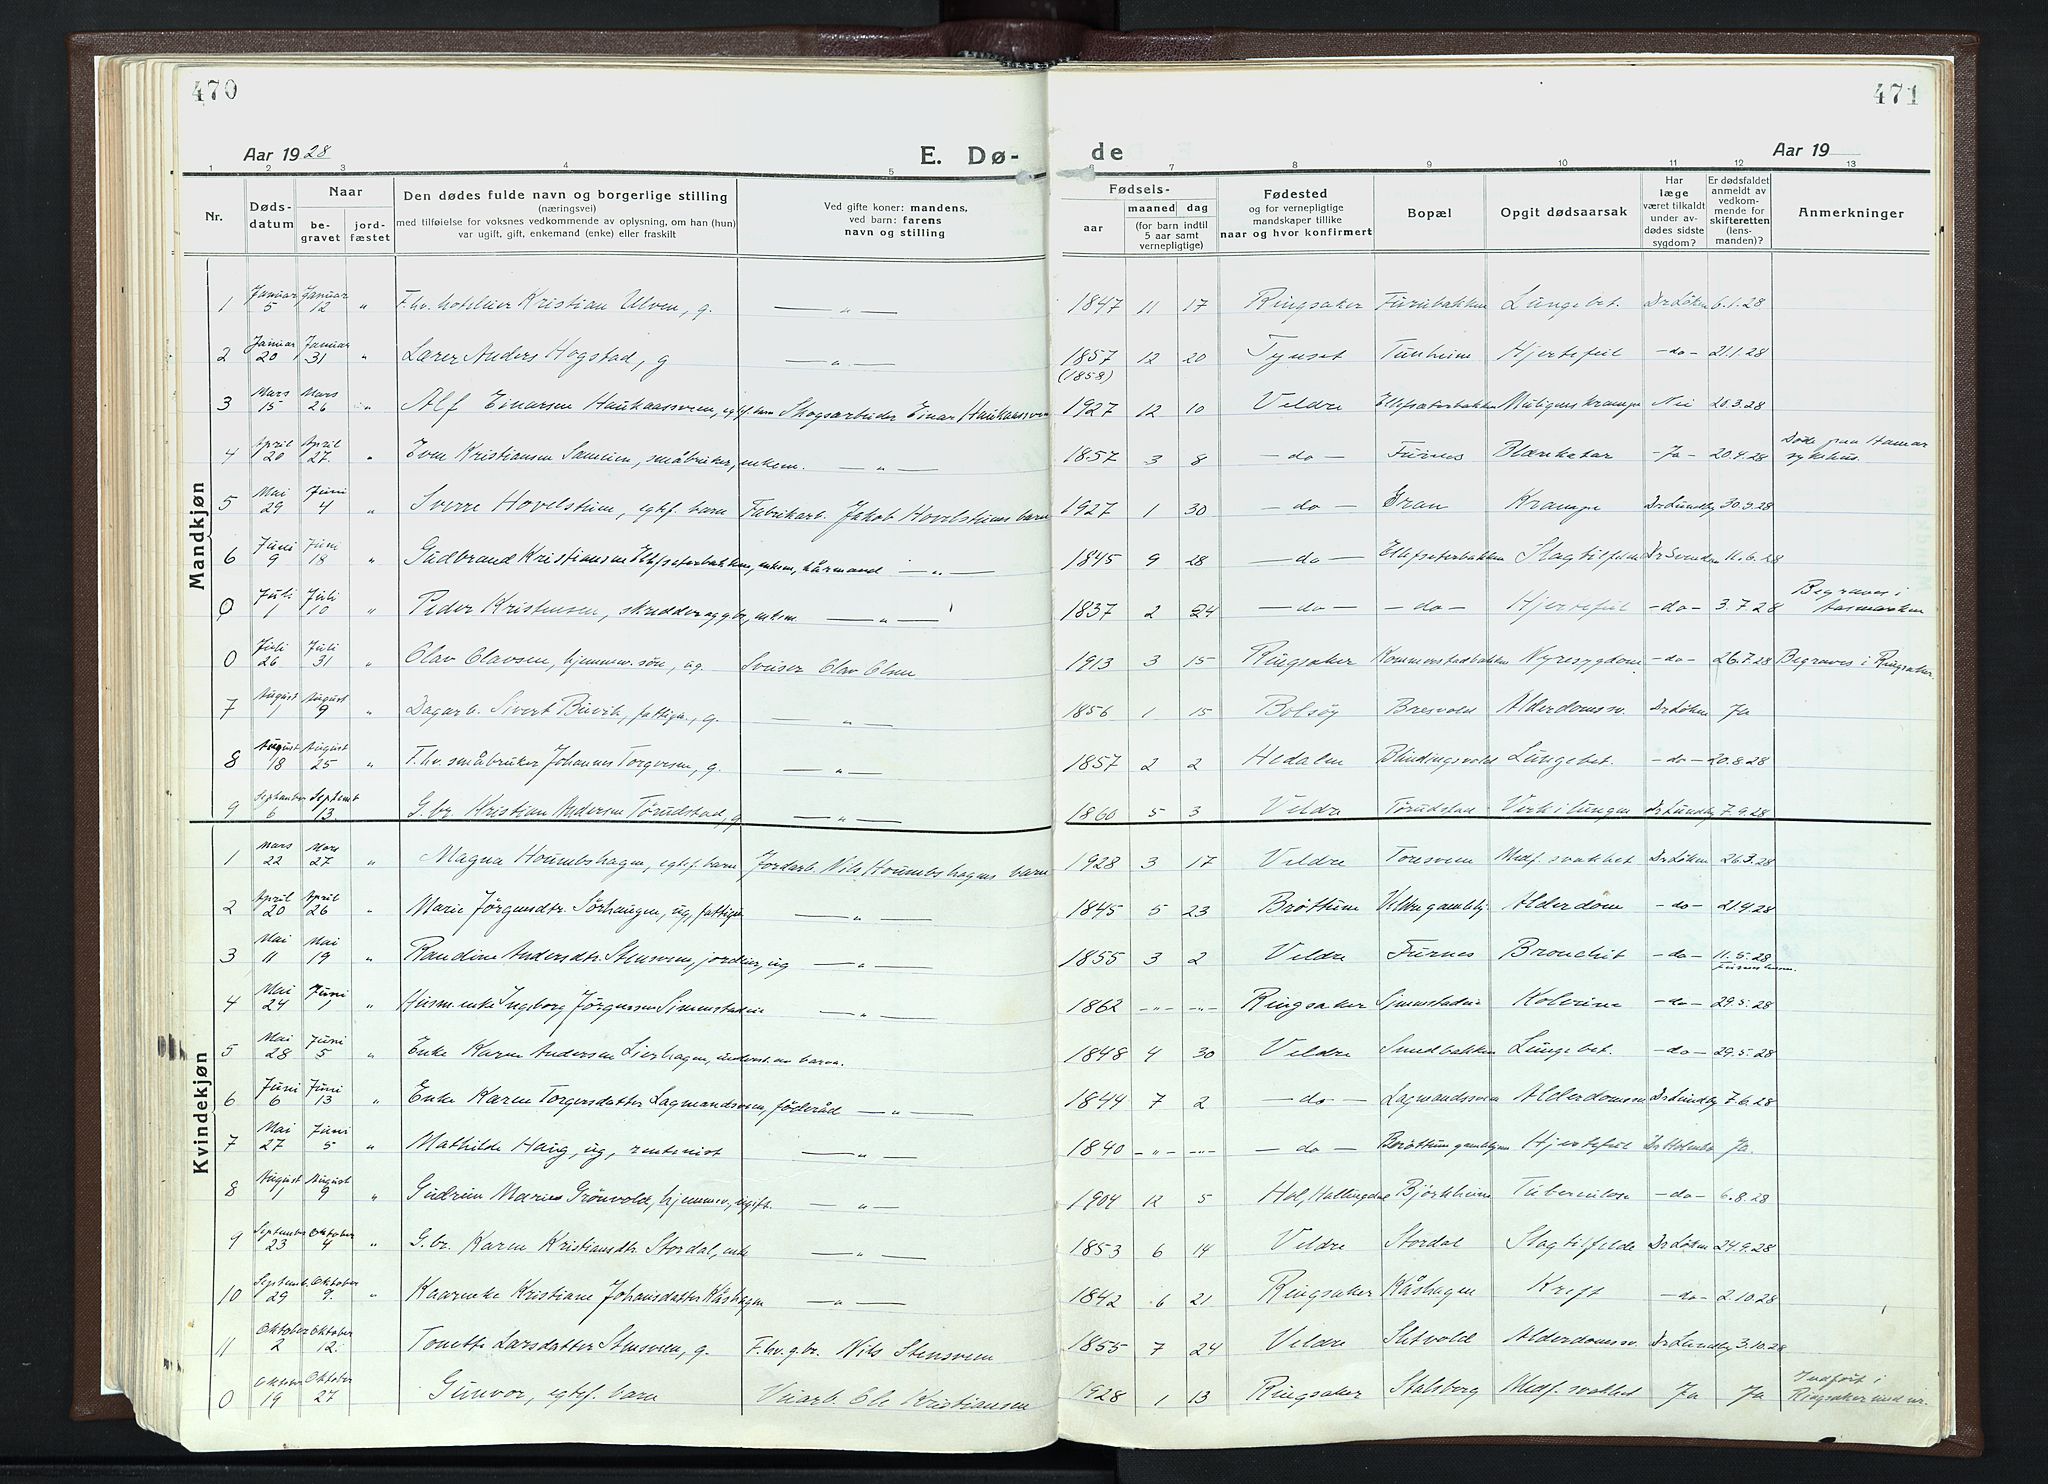 470
471
Aar 1928
E. Dø-
de
Aar 19
1 2 3 4 5 6 7 8 9 10 11 12 13
Nr.
Døds-
datum
Naar
be-
gravet
jord-
fæstet
Den dødes fulde navn og borgerlige stilling
(næringsvei)
med tilføielse for voksnes vedkommende av oplysning, om han (hun)
var ugift, gift, enkemand (enke) eller fraskilt
Ved gifte koner: mandens,
ved barn: farens
navn og stilling
Fødsels-
aar
maaned dag
(for barn indtil
5 aar samt
vernepligtige)
Fødested
og for vernepligtige
mandskaper tillike
naar og hvor konfirmert
Bopæl
Opgit dødsaarsak
Har
læge
været tilkaldt
under av-
dødes sidste
sygdom?
Er dødsfaldet
anmeldt av
vedkom-
mende for
skifteretten
(lens-
manden)?
Anmerkninger
Mandkjøn
1 Januar 5 Januar 12 " F. hv. hoteleier Kristian Ulven, g. — " — 1847 11 17 Ringsaker Furubakken Lungebet. Dr Løken 6.1.28
2 Januar 20 Januar 31 " Lærer Anders Hogstad, g — " — 1857 (1858) 12 20 Tynset Tunheim Hjertefeil — do — 21.1.28
3 Mars 15 Mars 26 " Alf Einarsen Haukaassveen, egtef. barn Skogsarbeider Einar Haukaassveen 1927 12 10 Veldre Ellefsæterbakken Muligens krampe Nei 20.3.28
4 April 20 April 27 " Even Kristiansen Sameien, småbruker, enkem. — " — 1857 3 8 — do — Furnes Blærekatar — Ja — 20.4.28 Døde paa Hamar sykehus.
5 Mai 29 Juni 4 " Sverre Hovelstuen, egtef. barn Fabrikarb. Jakob Hovelstuens barn 1927 1 30 — do — Gran Krampe Dr Lundby 30.5.28
6 Juni 9 Juni 18 " Gudbrand Kristiansen Ellefsæterbakken, enkem, kårmand — " — 1845 9 28 — do — Ellefsæterbakken Slagtilfelde Dr Svendsen 11.6.28
0 Juli 1 Juli 10 " Peder Kristensen, skredder og gbr, enkem. — " — 1837 2 24 — do — — do — Hjertefeil — do — 3.7.28 Begraves i Aasmarken
0 Juli 26 Juli 31 " Olav Olavsen, hjemmev. søn, ug. Sveiser Olav Olsen 1913 3 15 Ringsaker Kommerstadbakken Nyresygdom — do — 26.7.28 Begraves i Ringsaker.
7 August 1 August 9 " Dagarb. Sivert Buvik, fattign., g. — " — 1856 1 15 Bolsøy Bresvold Alderdomssv. Dr Løken Ja
8 August 18 August 25 " F. hv. småbruker Johannes Torgersen, g. — " — 1857 2 2 Hedalen Blindingsvold Lungebet. — do — 20.8.28
9 September 6 Septemb 13 G. br. Kristian Andersen Tørudstad, g — " — 1860 5 3 Veldre Tørudstad Verk i lungen Dr Lundby 7.9.28
Kvindekjøn
1 Mars 22 Mars 27 " Magna Houmbshagen, egtef. barn Jordarb. Nils Houmbshagens barn 1928 3 17 Veldre Toresveen Medf. svakhet Dr Løken 26.3.28
2 April 20 April 26 " Marie Jörgensdtr. Sörhaugen, ug., fattign — " — 1845 5 23 Brøttum Veldre gamlehj. Alderdom — do — 21.4.28
3 Mai 11 Mai 19 " Randine Andersdtr. Stensveen, jordeier, ug — " — 1855 3 2 Veldre Furnes Bronchit — do — 11.5.28
4 Mai 24 Juni 1 " Husm. enke Ingeborg Jørgensen Simenstadeie — " — 1862 — " — — " — Ringsaker Simenstadeie Kolerine — do — 29.5.28
5 Mai 28 Juni 5 " Enke Karen Andersen Lierhagen, underst. av barna. 1848 4 30 Veldre Smedbakken Lungebet. — do — 29.5.28
6 Juni 6 Juni 13 " Enke Karen Torgersdatter Lagmandsveen, føderåd — " — 1844 7 2 — do — Lagmandssveen Alderdomssv. Dr Lundby 7.6.28
7 Mai 27 Juni 5 " Mathilde Haug, ug, rentenist — " — 1840 — " — — " — — do — Brøttum gamlehjem Hjertefeil Dr Holmbo Ja.
8 August 1 August 9 " Gudrun Marie Grönvold, hjemmev, ugift. — " — 1904 12 5 Hol, Hallingdal Björkheim Tuberculose — do — 6.8.28
9 September 23 Oktober 4 " G. br. Karen Kristiansdtr. Stordal, enke — " — 1853 6 14 Veldre Stordal Slagtilfelde Dr Løken 24.9.28
10 Septemb. 29 Oktober 9. " Kaarenke Kristiane Johansdatter Kåshagen — " — 1842 6 21 Ringsaker Kåshagen Kreft — do — 2.10.28
11 Oktober 2 Oktober 12. Tonette Larsdatter Stensveen, g. F. hv. g. br. Nils Stensveen 1855 7 24 Veldre Sletvold Alderdomssv. Dr Lundby 3.10.28
0 Oktober 19 Oktober 27 Gunvor, egtef. barn Veiarb. Ole Kristiansen 1928 1 13 Ringsaker Stalsberg Medf. svakhet Ja Ja Indført i Ringsaker med nr.